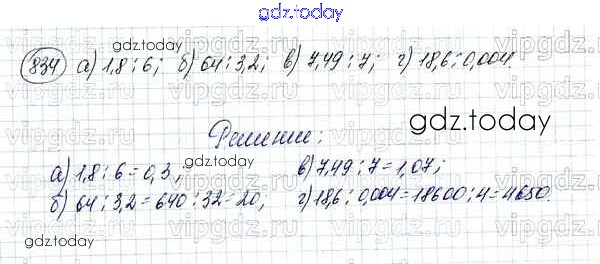 gdz.today
834 а) 1,8 : 6; б) 64 : 3,2; в) 7,49 : 7; г) 18,6 : 0,004.
gdz.today
gdz.today
Решение:
а) 1,8 : 6 = 0,3; в) 7,49 : 7 = 1,07;
б) 64 : 3,2 = 640 : 32 = 20; г) 18,6 : 0,004 = 18600 : 4 = 4650.
gdz.today
gdz.today